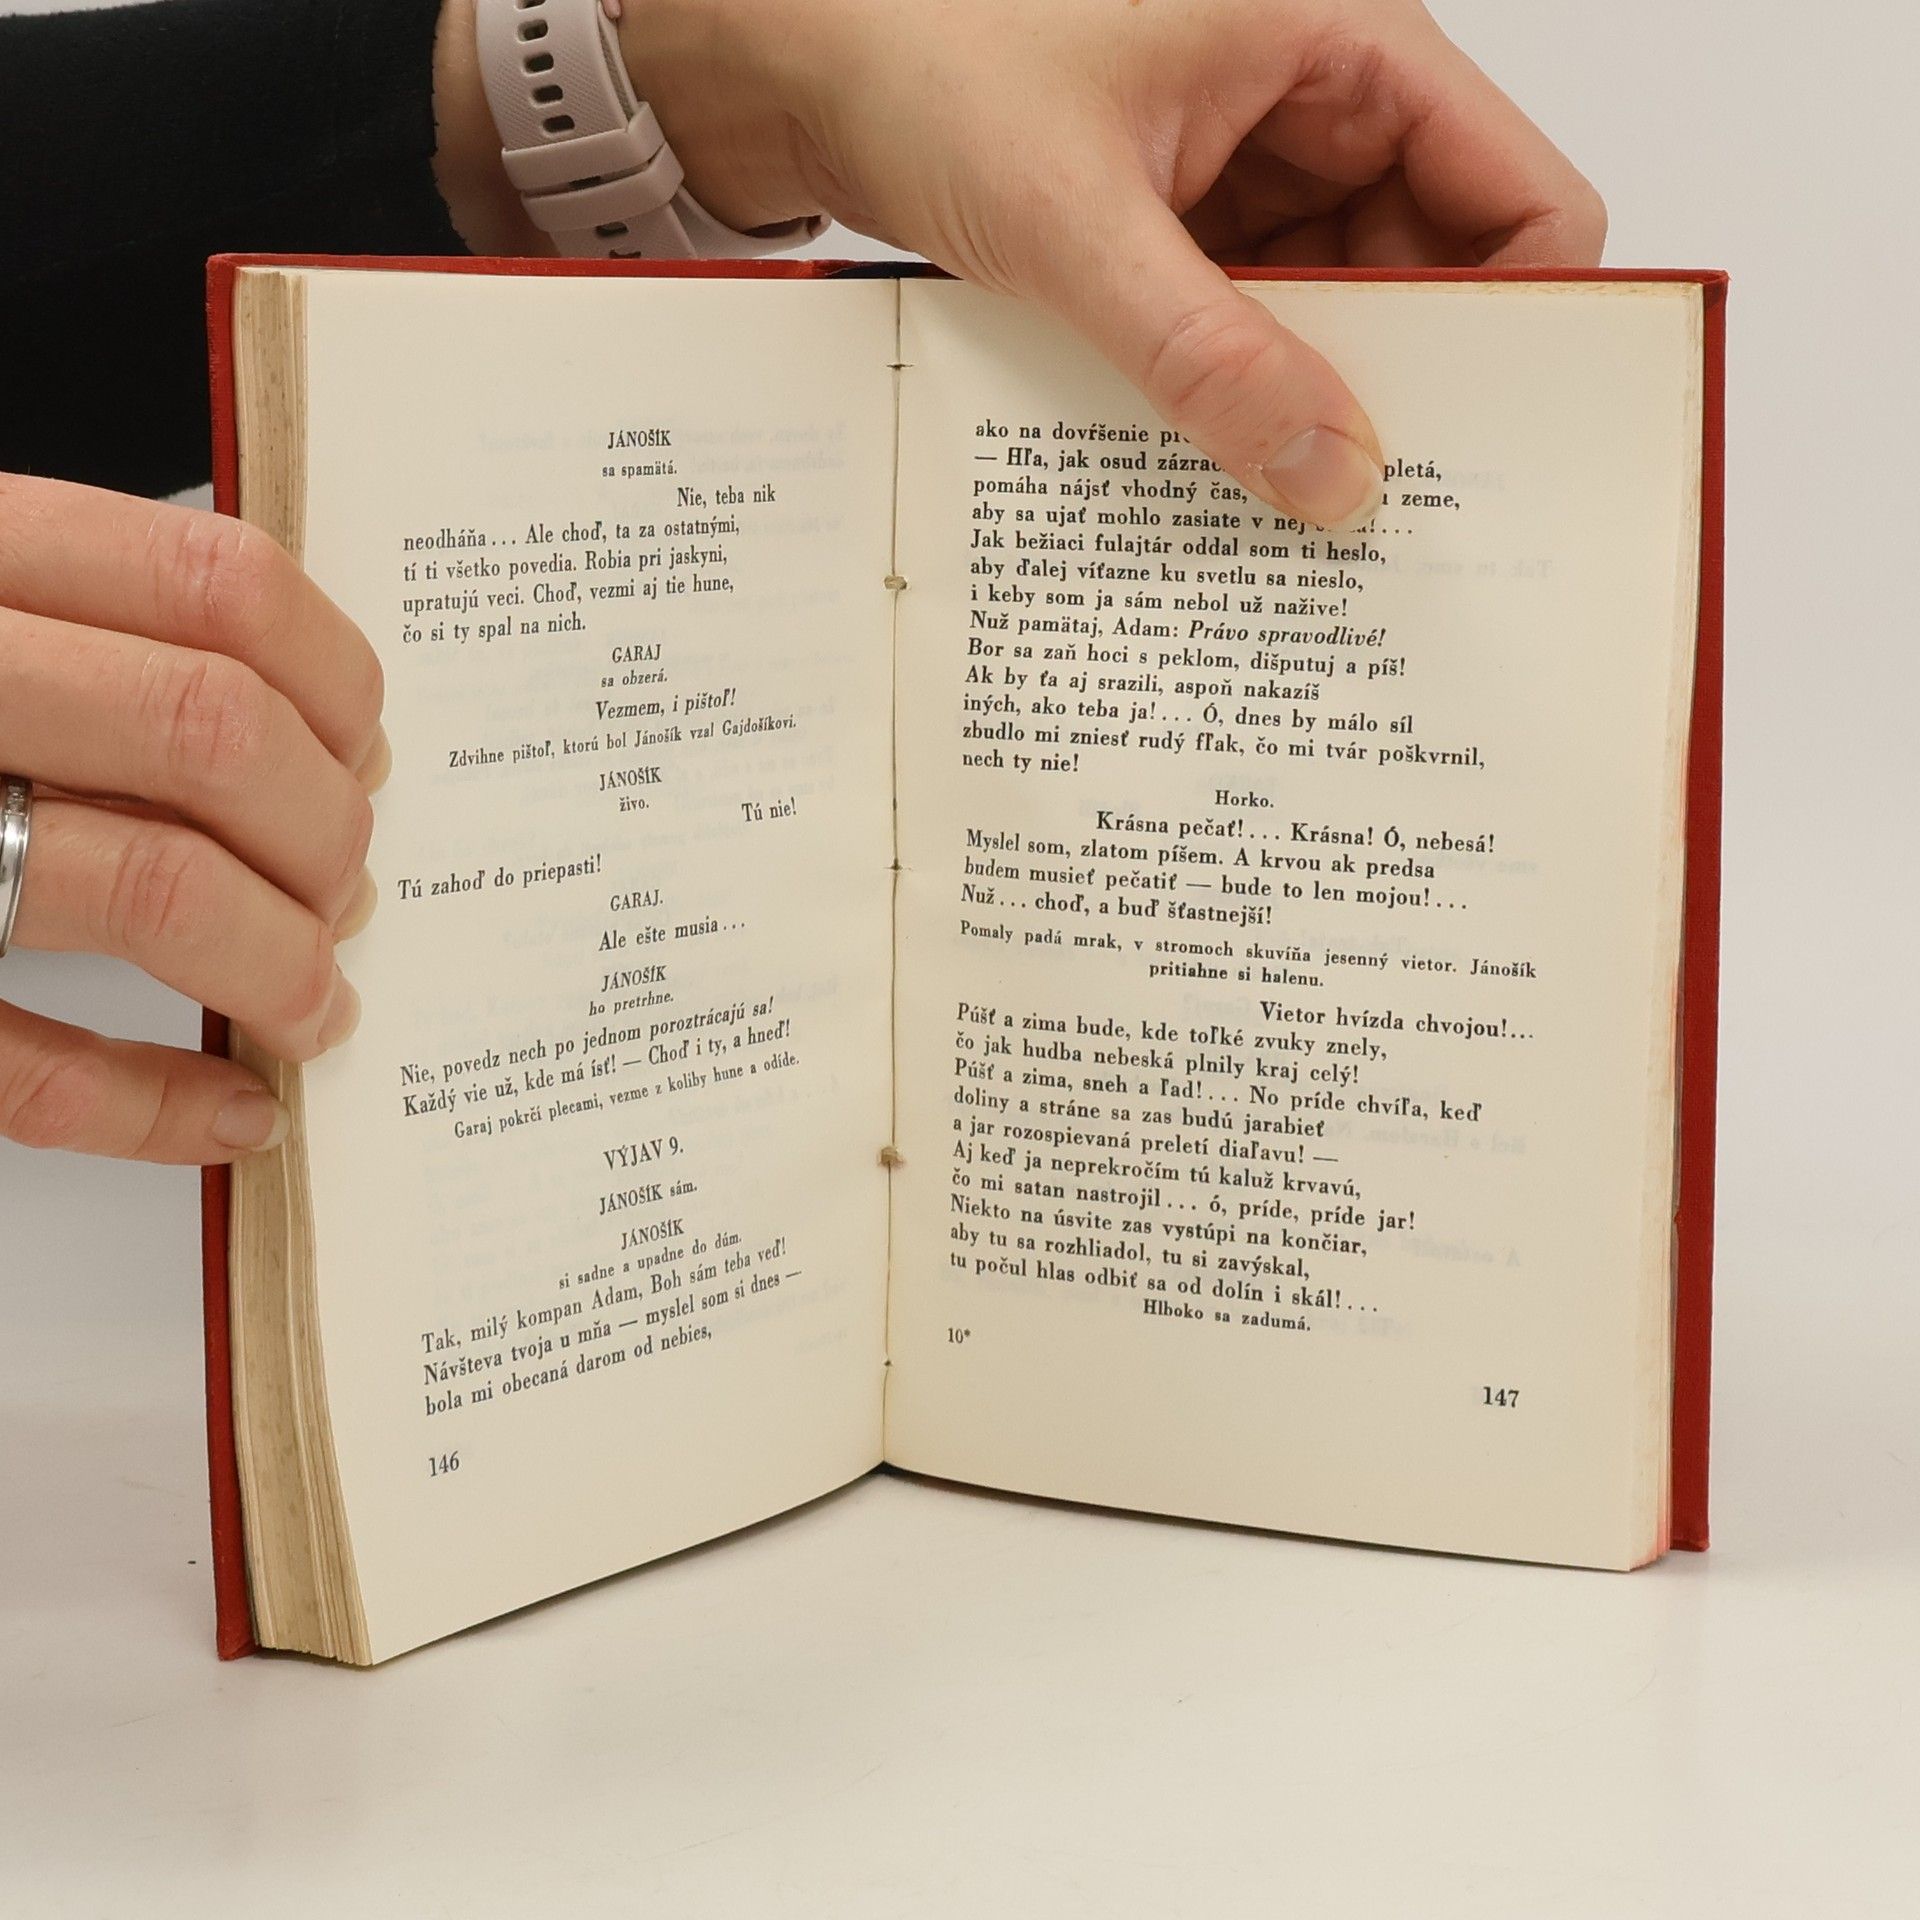 JÁNOŠÍK
sa spamätá.
Nie, teba nik
neodháňa... Ale choď, ta za ostatnými,
tí ti všetko povedia. Robia pri jaskyni,
upratujú veci. Choď, vezmi aj tie hune,
čo si ty spal na nich.
GARAJ
sa obzerá.
Vezmem, i pištoľ!
Zdvihne pištoľ, ktorú bol Jánošík vzal Gajdošíkovi.
JÁNOŠÍK
živo.
Tú nie!
Tú zahoď do priepasti!
GARAJ.
Ale ešte musia...
JÁNOŠÍK
ho pretrhne.
Nie, povedz nech po jednom poroztrácajú sa!
Každý vie už, kde má ísť! — Choď i ty, a hneď!
Garaj pokrčí plecami, vezme z koliby hune a odíde.
VÝJAV 9.
JÁNOŠÍK sám.
JÁNOŠÍK
si sadne a upadne do dúm.
Tak, milý kompan Adam, Boh sám teba veď!
Návšteva tvoja u mňa — myslel som si dnes —
bola mi obecaná darom od nebies,
146
ako na dovŕšenie
— Hľa, jak osud
pomáha nájsť vhodný čas, zeme,
aby sa ujať mohlo zasiate v nej
Jak bežiaci fulajtár oddal som ti heslo,
aby ďalej víťazne ku svetlu sa nieslo,
i keby som ja sám nebol už nažive!
Nuž pamätaj, Adam: Právo spravodlivé!
Bor sa zaň hoci s peklom, dišputuj a píš!
Ak by ťa aj srazili, aspoň nakazíš
iných, ako teba ja!... Ó, dnes by málo síl
zbudlo mi zniesť rudý fľak, čo mi tvár poškvrnil,
nech ty nie!
Horko.
Krásna pečať!... Krásna! Ó, nebesá!
Myslel som, zlatom píšem. A krvou ak predsa
budem musieť pečatiť — bude to len mojou!...
Nuž... choď, a buď šťastnejší!
Pomaly padá mrak, v stromoch skuvíňa jesenný vietor. Jánošík
pritiahne si halenu.
Vietor hvízda chvojou!...
Púšť a zima bude, kde toľké zvuky znely,
čo jak hudba nebeská plnily kraj celý!
Púšť a zima, sneh a ľad!... No príde chvíľa, keď
doliny a stráne sa zas budú jarabieť
a jar rozospievaná preletí diaľavu! —
Aj keď ja neprekročím tú kaluž krvavú,
čo mi satan nastrojil... ó, príde, príde jar!
Niekto na úsvite zas vystúpi na končiar,
aby tu sa rozhliadol, tu si zavýskal,
tu počul hlas odbiť sa od dolín i skál!...
Hlboko sa zadumá.
10*
147